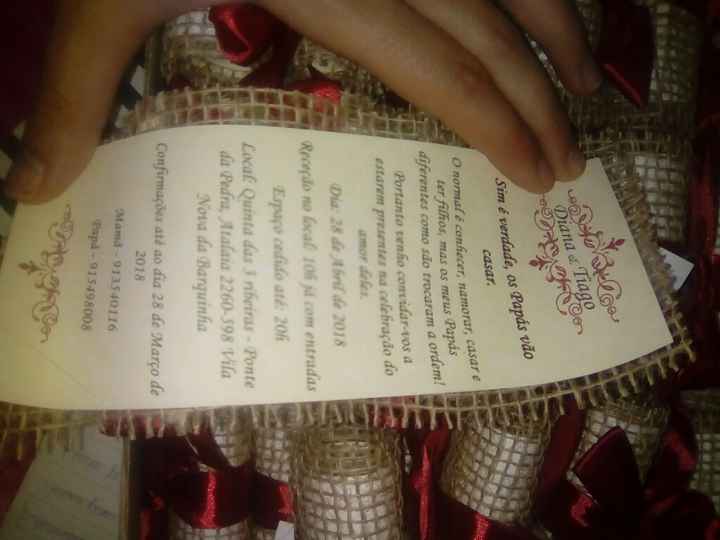 Diana & Tiago
Sim é verdade, os Papás vão
casar.
O normal é conhecer, namorar, casar e
ter filhos, mas os meus Papás
diferentes como são trocaram a ordem!
Portanto venho convidar-vos a
estarem presentes na celebração do
amor deles.
Dia: 28 de Abril de 2018
Receção no local: 10h já com entradas
Espaço cedido até: 20h
Local: Quinta das 3 ribeiras – Ponte
da Pedra, Atalaia 2260-398 Vila
Nova da Barquinha
Confirmações até ao dia 28 de Março de
2018
Mamã – 913540116
Papá – 915498008